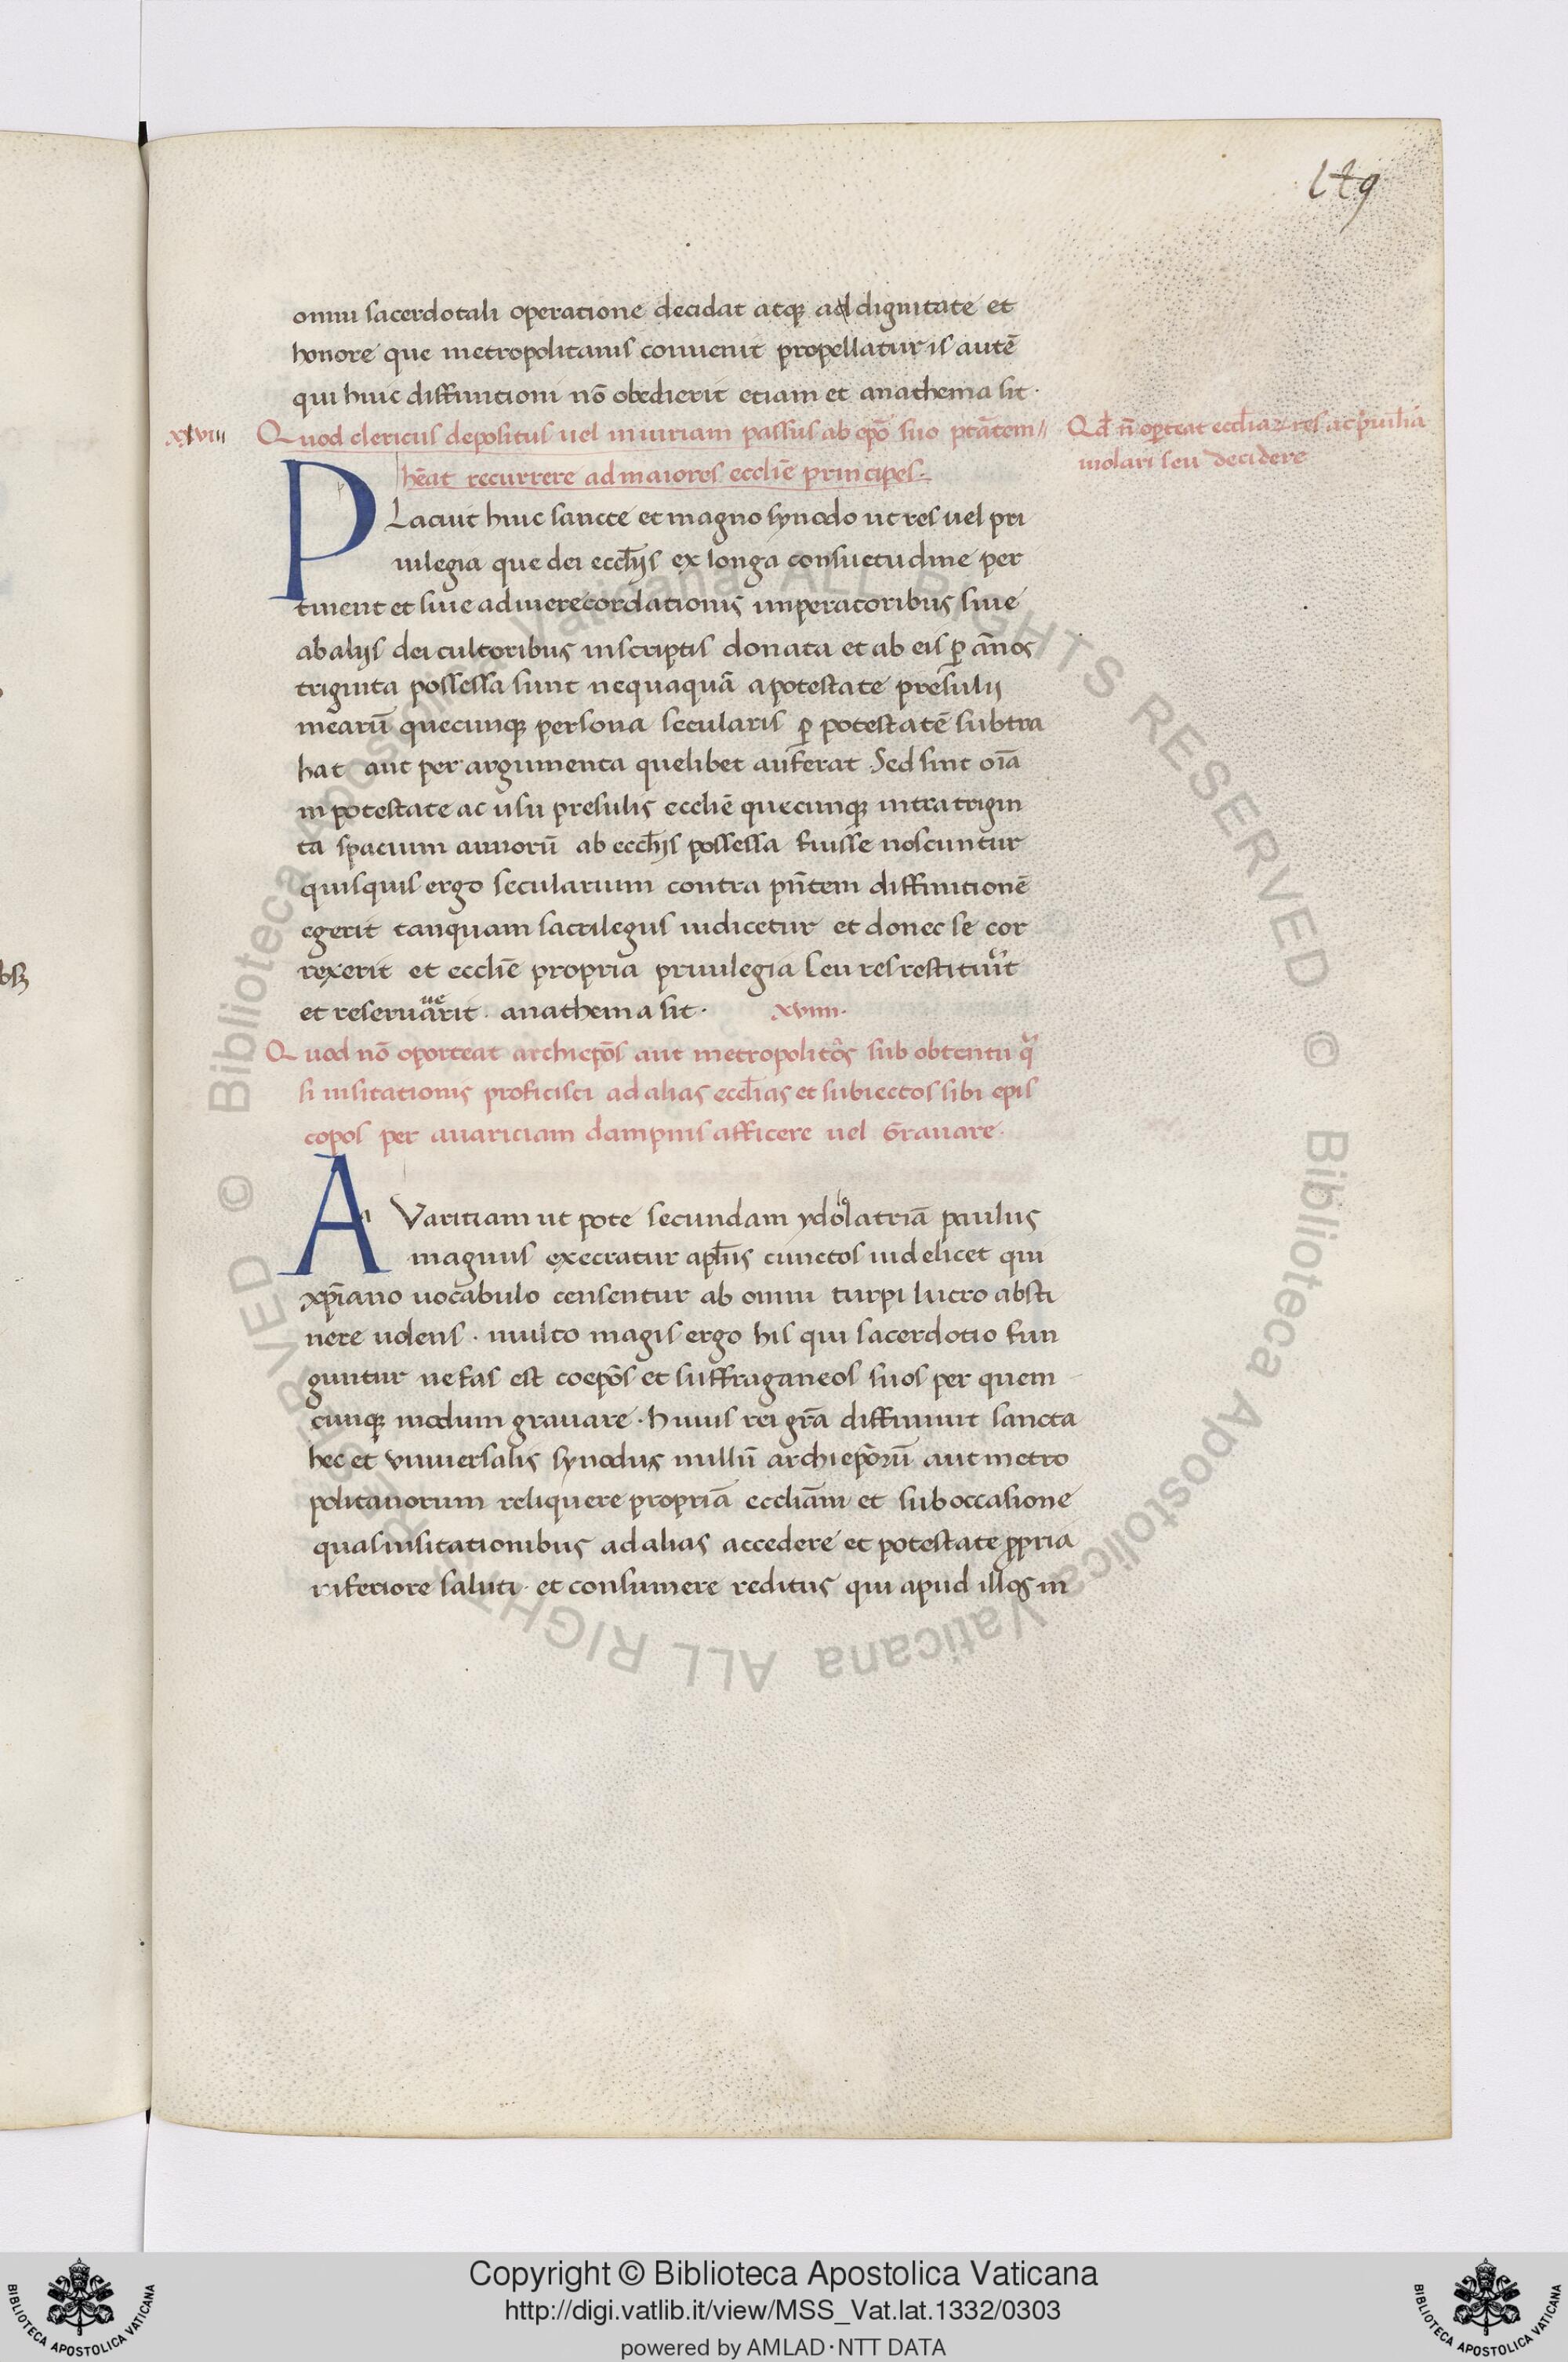 149
omni sacerdotali operatione decidat atqꝫ ad dignitate et
honore que metropolitanis conuenit propellatur is autē
qui huic diffinitioni nō obedierit etiam et anathema sit ·
xxviii Quod clericus depositus uel iniuriam passus ab ep̄o suo ptātem //
hēat recurrere ad maiores eccliē principes .
Qd̄ n̄ oporteat eccl̄iaꝝ res ac priuil̄ia
uiolari seu decidere
PLacuit huic sancte et magno synodo ut res uel pri
uilegia que dei eccl̄ijs ex longa consuetudine per
tinent et siue adiuere cordationis imperatoribus siue
ab alijs dei cultoribus inscriptis donata et ab eis ꝑ ān̄os
triginta possessa sunt nequaquā a potestate presulij
mearū quecunqꝫ persona secularis ꝑ potestatē subtra
hat aut per argumenta quelibet auferat . Sed sint oīa
in potestate ac usu presulis eccliē quecunqꝫ intra trigin
ta spacium annorū ab eccl̄ijs possessa fuisse noscuntur
quisquis ergo secularium contra pn̄tem diffinitionē
egerit tanquam sacrilegus iudicetur et donec se cor
rexerit et eccliē propria priuilegia seu res restituerit
et reseruauerit . anathema sit . xviiii .
Quod nō oporteat archiep̄os aut metropolitōs sub obtentu qua
si uisitationis proficisci ad alias eccl̄ias et subiectos sibi epis
copos per auariciam dampnis afficere uel Grauare .
AVaritiam ut pote secundam ydolatriā paulus
magnus execratur apl̄us cunctos uidelicet qui
xp̄iano uocabulo censentur ab omni turpi lucro absti
nere uolens . multo magis ergo his qui sacerdotio fun
guntur nefas est coep̄os et suffraganeos suos per quem
cunqꝫ modum grauare . huius rei gr̄a diffiniuit sancta
hec et vniuersalis synodus nullū archiep̄orū aut metro
politanorum reliquere propriā eccliām et sub occasione
quasi uisitationibus ad alias accedere et potestate ꝓpria
inferiore saluti . et consumere reditus qui apud illos in
Copyright © Biblioteca Apostolica Vaticana
http://digi.vatlib.it/view/MSS_Vat.lat.1332/0303
powered by AMLAD·NTT DATA